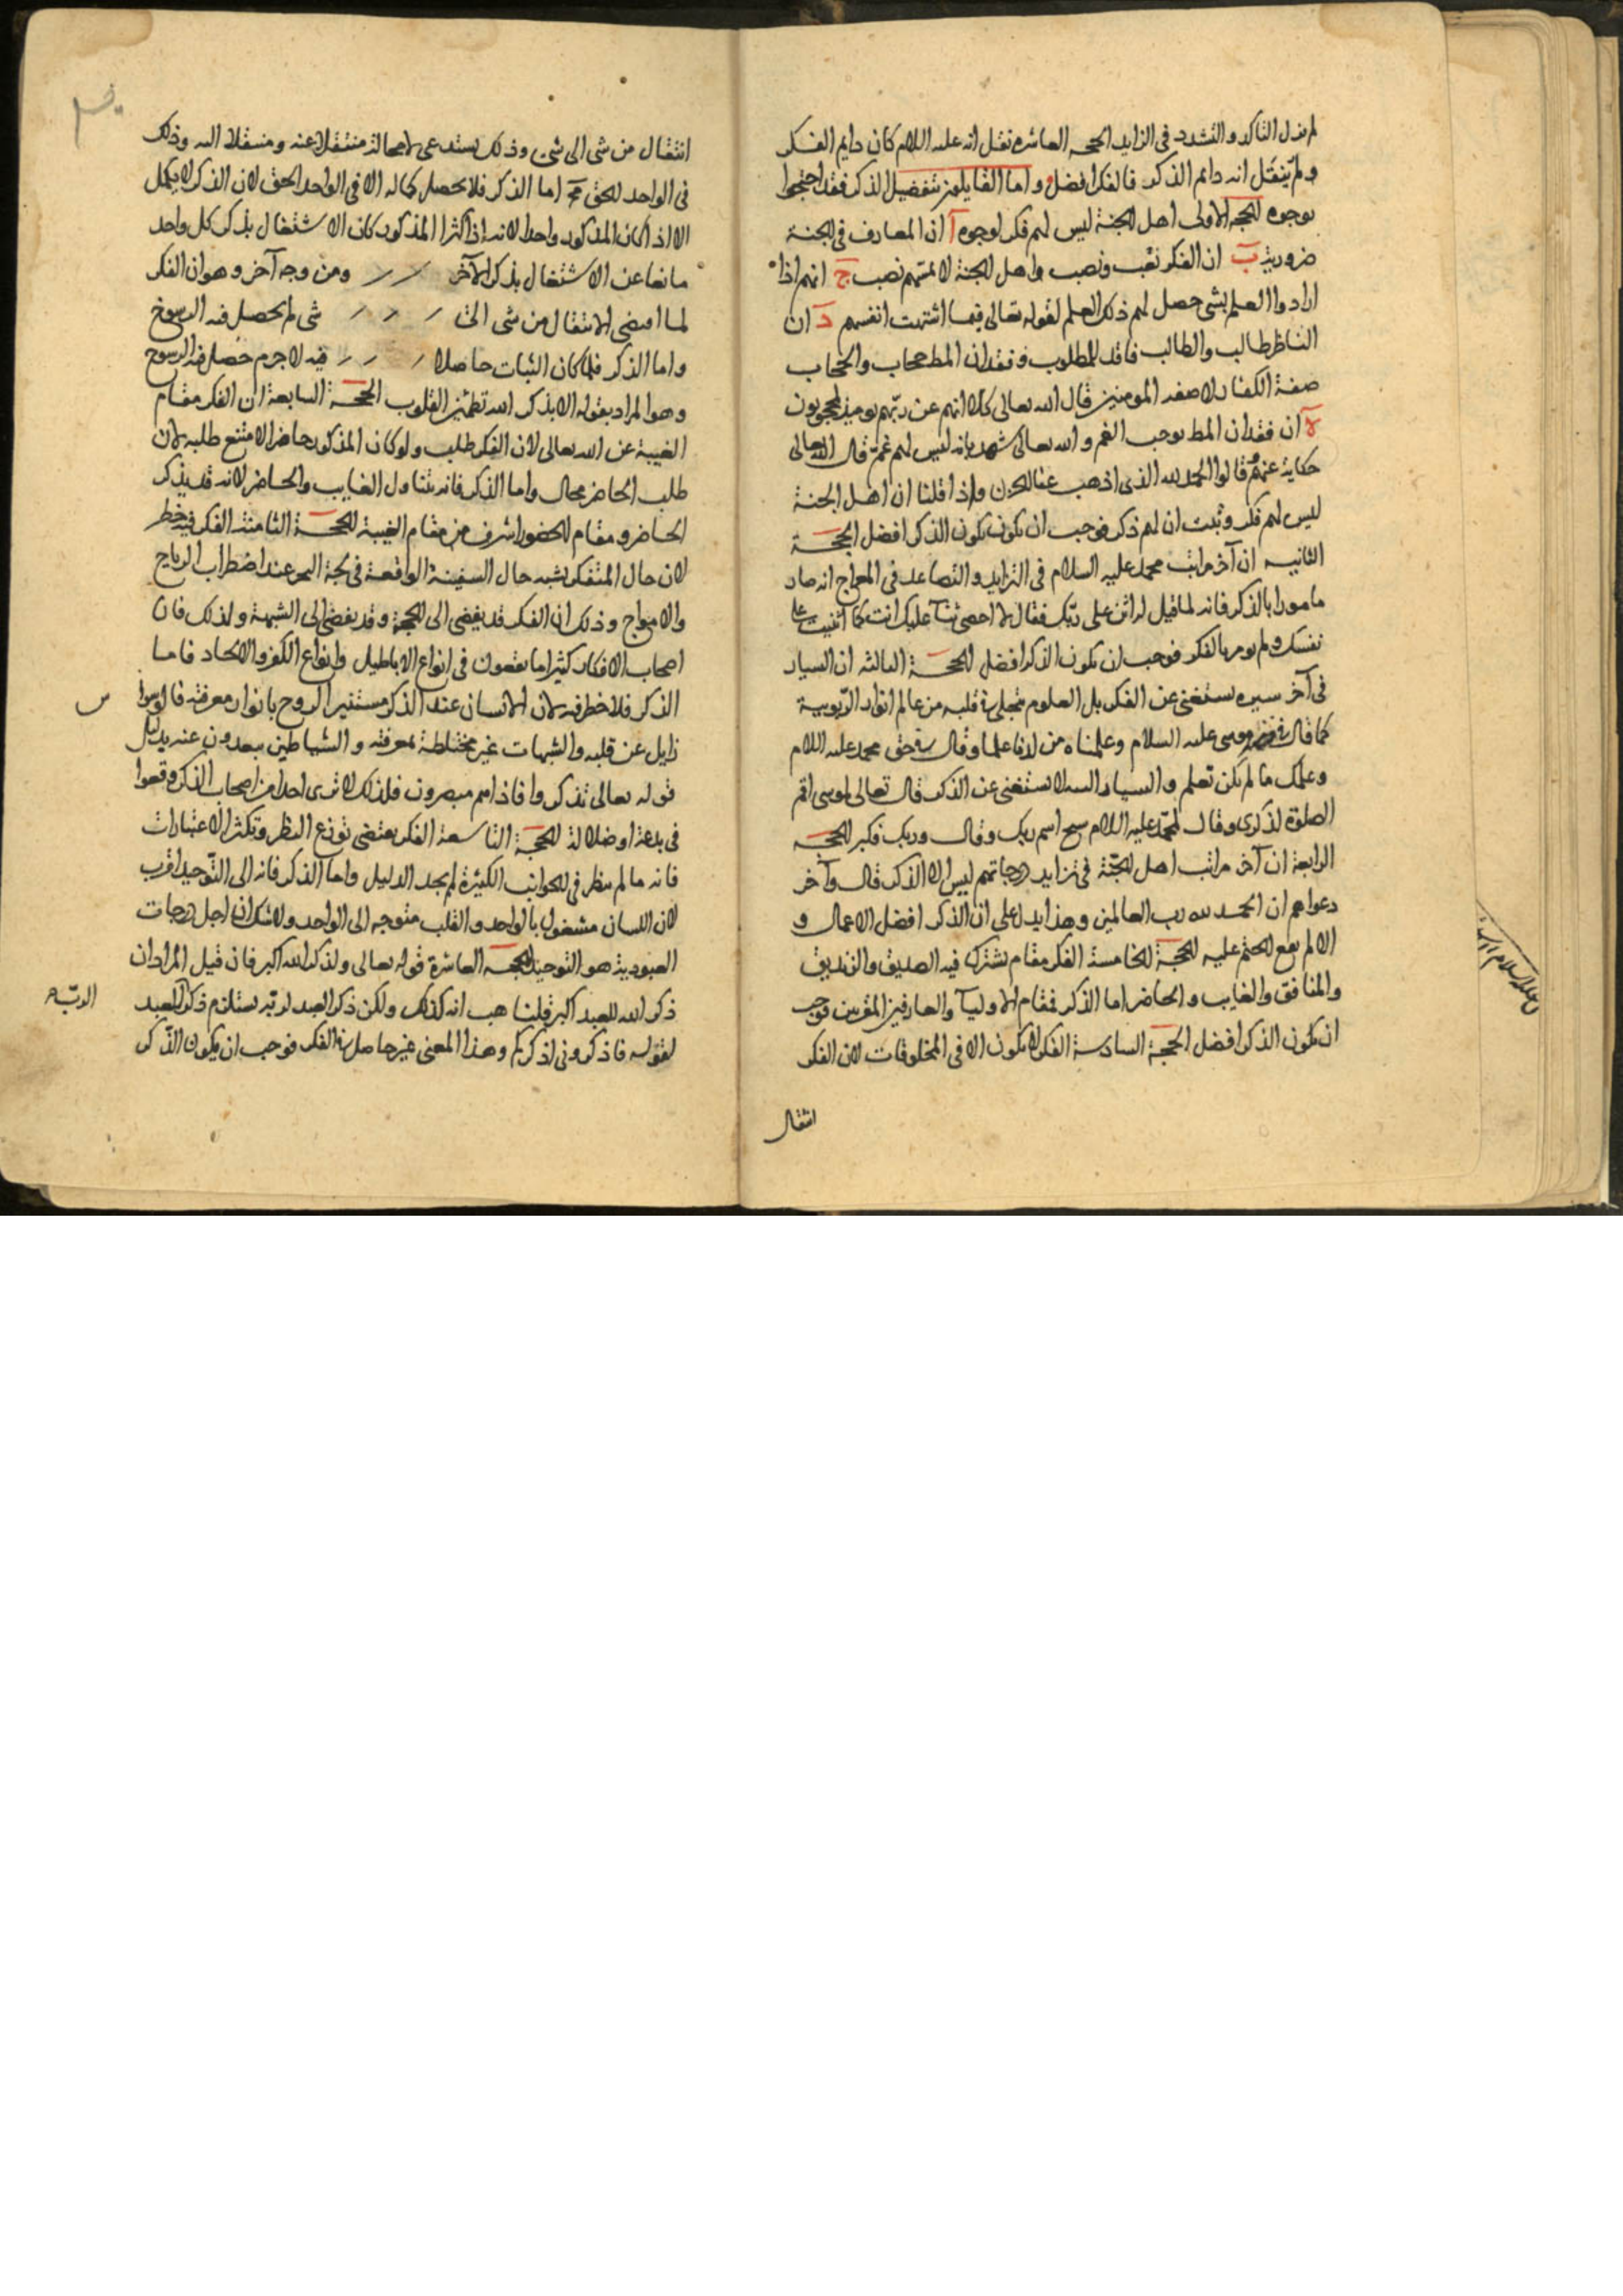 لم يزل التاكد والتشدد في الزايد الحجه العاشره نقل انه عليه اللام كان دايم الفكر
ولم ينقل انه دايم الذكر فالفكر افضل واما القايلون بتفضيل الذكر فقد احتجوا
بوجوه الحجه الاولى اهل الجنة ليس لهم فكر لوجوه آ ان المعارف في الجنة
ضرورية ب ان الفكر تعب ونصب واهل الجنة لا يمسهم نصب ج انهم اذا
ارادوا العلم بشى حصل لهم ذلك العلم لقوله تعالى فيما اشتهت انفسهم د ان
الناظر طالب والطالب فاقد للمطلوب وفقدان المط حجاب والحجاب
صفة الكفار لا صفه المومنين قال الله تعالى كلا انهم عن ربهم يوميذ لمحجوبون
ه ان فقدان المط يوجب الغم والله تعالى شهد بانه ليس لهم غم قال الله تعالى
حكاية عنهم قالوا الحمد لله الذى اذهب عنا الحزن واذا قلنا ان اهل الجنة
ليس لهم فكر وثبت ان لهم ذكر فوجب ان يكون يكون الذكر افضل الحجة
الثانيه ان آخر مراتب محمد عليه السلام في التزايد والتصاعد في المعراج انه صار
مامورا بالذكر فانه لما قيل له اثن على ربك فقال لا احصى ثنآ عليك انت كما اثنيت على
نفسك ولم يومر بالفكر فوجب ان يكون الذكر افضل الحجة الثالثه ان السيار
في آخر سيره يستغنى عن الفكر بل العلوم متجلية في قلبه من عالم انوار الربوبية
كما قال في موسى عليه السلام وعلمناه من لدنا علما وقال في حق محمد عليه اللام
وعلمك ما لم تكن تعلم والسيار لا يستغنى عن الذكر قال تعالى لموسى اقم
الصلوة لذكرى وقال لمحمد عليه اللام سبح اسم ربك وقال وربك فكبر الحجه
الرابعة ان آخر مراتب اهل الجنة في تزايد درجاتهم ليس الا الذكر قال وآخر
دعواهم ان الحمد لله رب العالمين وهذا يدل على ان الذكر افضل الاعمال و
الا لم يقع الختم عليه الحجة الخامسة الفكر مقام يشترك فيه الصديق والزنديق
والمنافق والغايب والحاضر اما الذكر فمقام الاوليآ والعارفين المقربين فوجب
ان يكون الذكر افضل الحجة السادسة الفكر لا يكون الا في المخلوقات لان الفكر
انتقال
انتقال من شى الى شى وذلك يستدعى لا محالة منتقلا عنه ومنتقلا اليه وذلك
في الواحد الحق مح اما الذكر فلا يحصل كماله الا في الواحد الحق لان الذكر لا يكمل
الا اذا كان المذكور واحدا لانه اذا كثر المذكور كان الاشتغال بذكر كل واحد
مانعا عن الاشتغال بذكر الآخر ومن وجه آخر وهو ان الفكر
لما اقتضى الانتقال من شى الى شى لم يحصل فيه الرسوخ
واما الذكر فلما كان الثبات حاصلا فيه لا جرم حصل فيه الرسوخ
وهو المراد بقوله الا بذكر الله تطمئن القلوب الحجة السابعة ان الفكر مقام
الغيبة عن الله تعالى لان الفكر طلب ولو كان المذكور حاضرا لامتنع طلبه لان
طلب الحاضر محال واما الذكر فانه يتناول الغايب والحاضر لانه قد يذكر
الحاضر ومقام الحضور اشرف من مقام الغيبة الحجة الثامنة الفكر فيه خطر
لان حال المتفكر يشبه حال السفينة الواقعة في لجة البحر عند اضطراب الرياح
والامواج وذلك ان الفكر قد يفضى الى الحجة وقد يفضى الى الشبهة ولذلك فان
اصحاب الافكار كثيرا ما يقعون في انواع الاباطيل وانواع الكفر والالحاد فاما
الذكر فلا خطر فيه لان الانسان عند الذكر مستنير الروح بانوار معرفته فالوسواس
زايل عن قلبه والشبهات غير مختلطة بمعرفته والشياطين يبعدون عنه بدليل
قوله تعالى تذكروا فاذا هم مبصرون فلذلك لا ترى احدا من اصحاب الذكر وقعوا
في بدعة او ضلالة الحجة التاسعة الفكر يقتضى توزع النظر وتكثر الاعتبارات
فانه ما لم ينظر في الجوانب الكثيرة لم يجد الدليل واما الذكر فانه الى التوحيد اقرب
لان اللسان مشغول بالواحد والقلب متوجه الى الواحد ولا شك ان اجل درجات
العبودية هو التوحيد الحجه العاشرة قوله تعالى ولذكر الله اكبر فان قيل المراد ان
ذكر الله للعبد اكبر قلنا هب انه كذلك ولكن ذكر العبد لربه يستلزم ذكر العبد
لقوله فاذكرونى اذكركم وهذا المعنى غير حاصل في الفكر فوجب ان يكون الذكر
الربّ